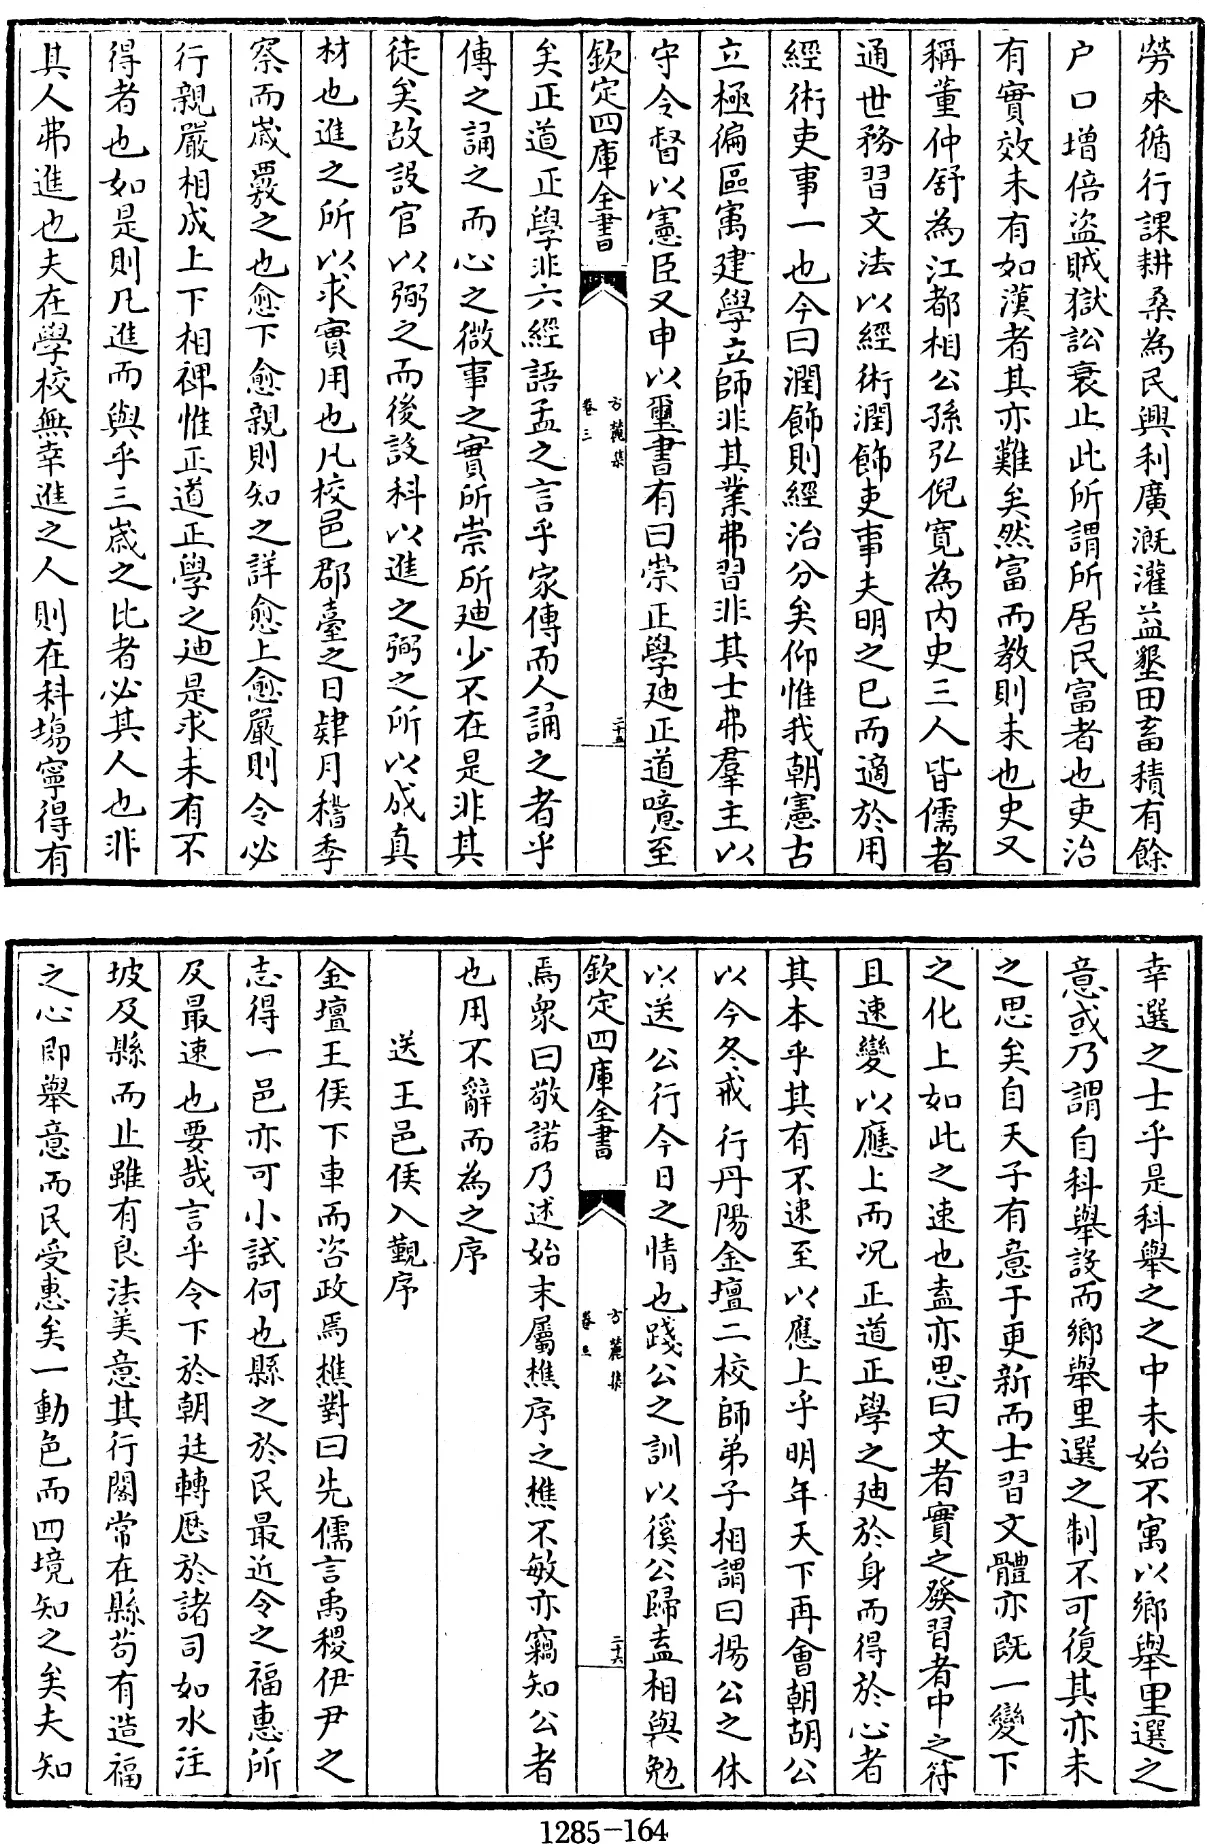 勞來循行課耕桑為民興利廣溉灌益墾田畜積有餘
户口增倍盜賊獄訟衰止此所謂所居民富者也吏治
有實效未有如漢者其亦難矣然富而教則未也史又
稱董仲舒為江都相公孫弘倪寛為内史三人皆儒者
通世務習文法以經術潤飾吏事夫明之已而適於用
經術吏事一也今曰潤飾則經治分矣仰惟我朝憲古
立極徧區寓建學立師非其業弗習非其士弗羣主以
守令督以憲臣又申以璽書有曰崇正學廸正道噫至
欽定四庫全書
方麓集
卷三
二十五
矣正道正學非六經語孟之言乎家傳而人誦之者乎
傳之誦之而心之微事之實所崇所廸少不在是非其
徒矣故設官以弼之而後設科以進之弼之所以成真
材也進之所以求實用也凡校邑郡臺之日肄月稽季
察而嵗覈之也愈下愈親則知之詳愈上愈嚴則令必
行親嚴相成上下相禆惟正道正學之廸是求未有不
得者也如是則凡進而與乎三嵗之比者必其人也非
其人弗進也夫在學校無幸進之人則在科塲寧得有
幸選之士乎是科舉之中未始不寓以鄉舉里選之
意或乃謂自科舉設而鄉舉里選之制不可復其亦未
之思矣自天子有意于更新而士習文體亦既一變下
之化上如此之速也盍亦思曰文者實之發習者中之符
且速變以應上而况正道正學之廸於身而得於心者
其本乎其有不速至以應上乎明年天下再會朝胡公
以今冬戒行丹陽金壇二校師弟子相謂曰揚公之休
以送公行今日之情也踐公之訓以徯公歸盍相與勉
欽定四庫全書
方麓集
卷三
二十六
焉衆曰敬諾乃述始末屬樵序之樵不敏亦竊知公者
也用不辭而為之序
送王邑侯入覲序
金壇王侯下車而咨政焉樵對曰先儒言禹稷伊尹之
志得一邑亦可小試何也縣之於民最近令之福惠所
及最速也要哉言乎令下於朝廷轉厯於諸司如水注
坡及縣而止雖有良法美意其行閣常在縣苟有造福
之心即舉意而民受惠矣一動色而四境知之矣夫知
1285-164